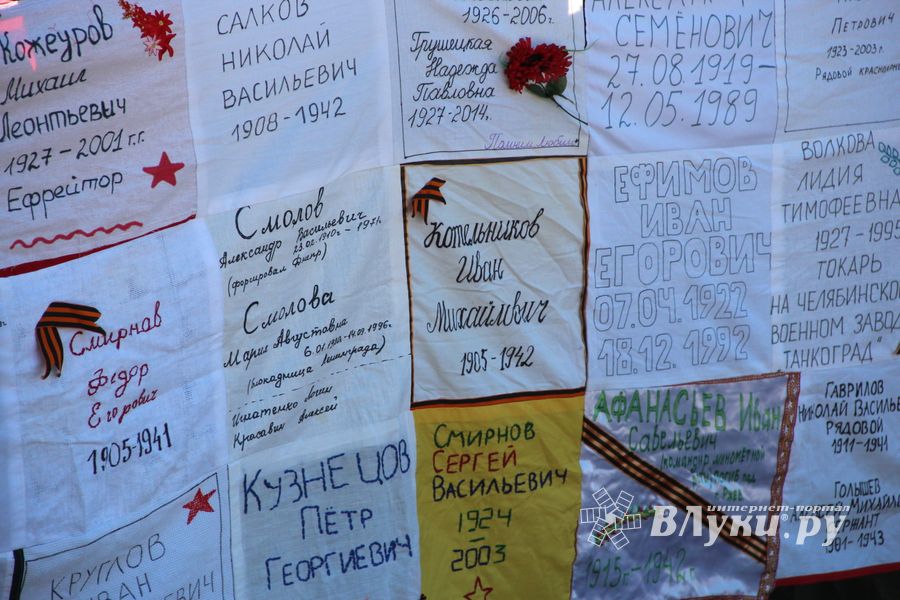 Кожеуров
Михаил
Леонтьевич
1927-2001 г.г.
Ефрейтор
САЛКОВ
НИКОЛАЙ
ВАСИЛЬЕВИЧ
1908-1942
1926-2006г.
Грушецкая
Надежда
Павловна
1927-2014г.
Помним Любим
СЕМЁНОВИЧ
27.08.1919-
12.05.1989
Петрович
1923-2003г.
Рядовой
Смирнов
Фёдор
Егорович
1905-1941
Смолов
Александр Васильевич
(форсировал Днепр)
Смолова
Мария Августовна
(блокадница Ленинграда)
Игнатенко
Красавин Алексей
Котельников
Иван
Михайлович
1905-1942
ЕФИМОВ
ИВАН
ЕГОРОВИЧ
07.04.1922
18.12.1992
ВОЛКОВА
ЛИДИЯ
ТИМОФЕЕВНА
1927-1995
ТОКАРЬ
НА ЧЕЛЯБИНСКО
ВОЕННОМ ЗАВОД
ТАНКОГРАД"
КРУГЛОВ
ИВАН
КУЗНЕЦОВ
ПЁТР
ГЕОРГИЕВИЧ
СМИРНОВ
СЕРГЕЙ
ВАСИЛЬЕВИЧ
1924
-
2003
АФАНАСЬЕВ Иван
Савельевич
командир миномётной
1915г.-1942г.
ГАВРИЛОВ
НИКОЛАЙ ВАСИЛЬЕ
РЯДОВОЙ
1911-1941
ГОЛЫШЕВ
МИХАЙЛ
СЕРЖАНТ
1901-1943
интернет-портал
ВЛуки.ру